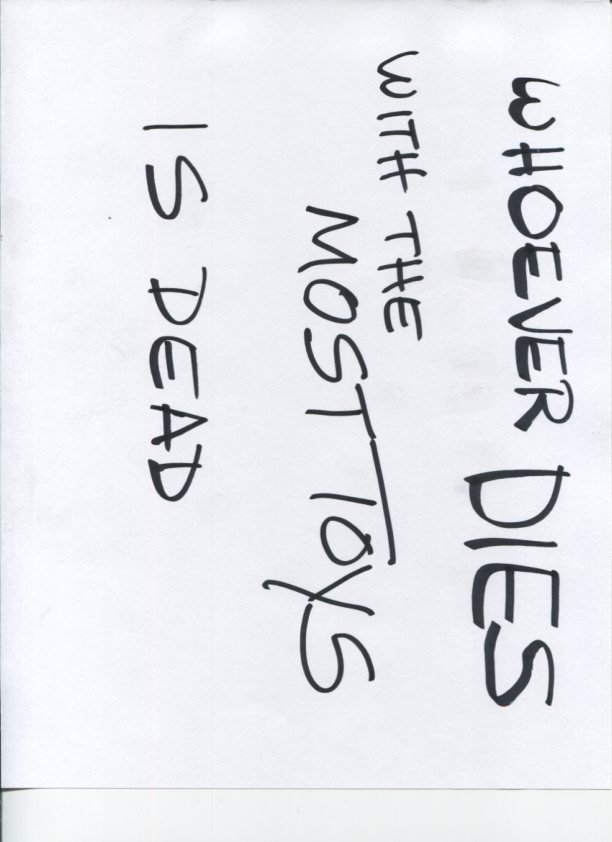 WHOEVER DIES
WITH THE
MOST TOYS
IS DEAD